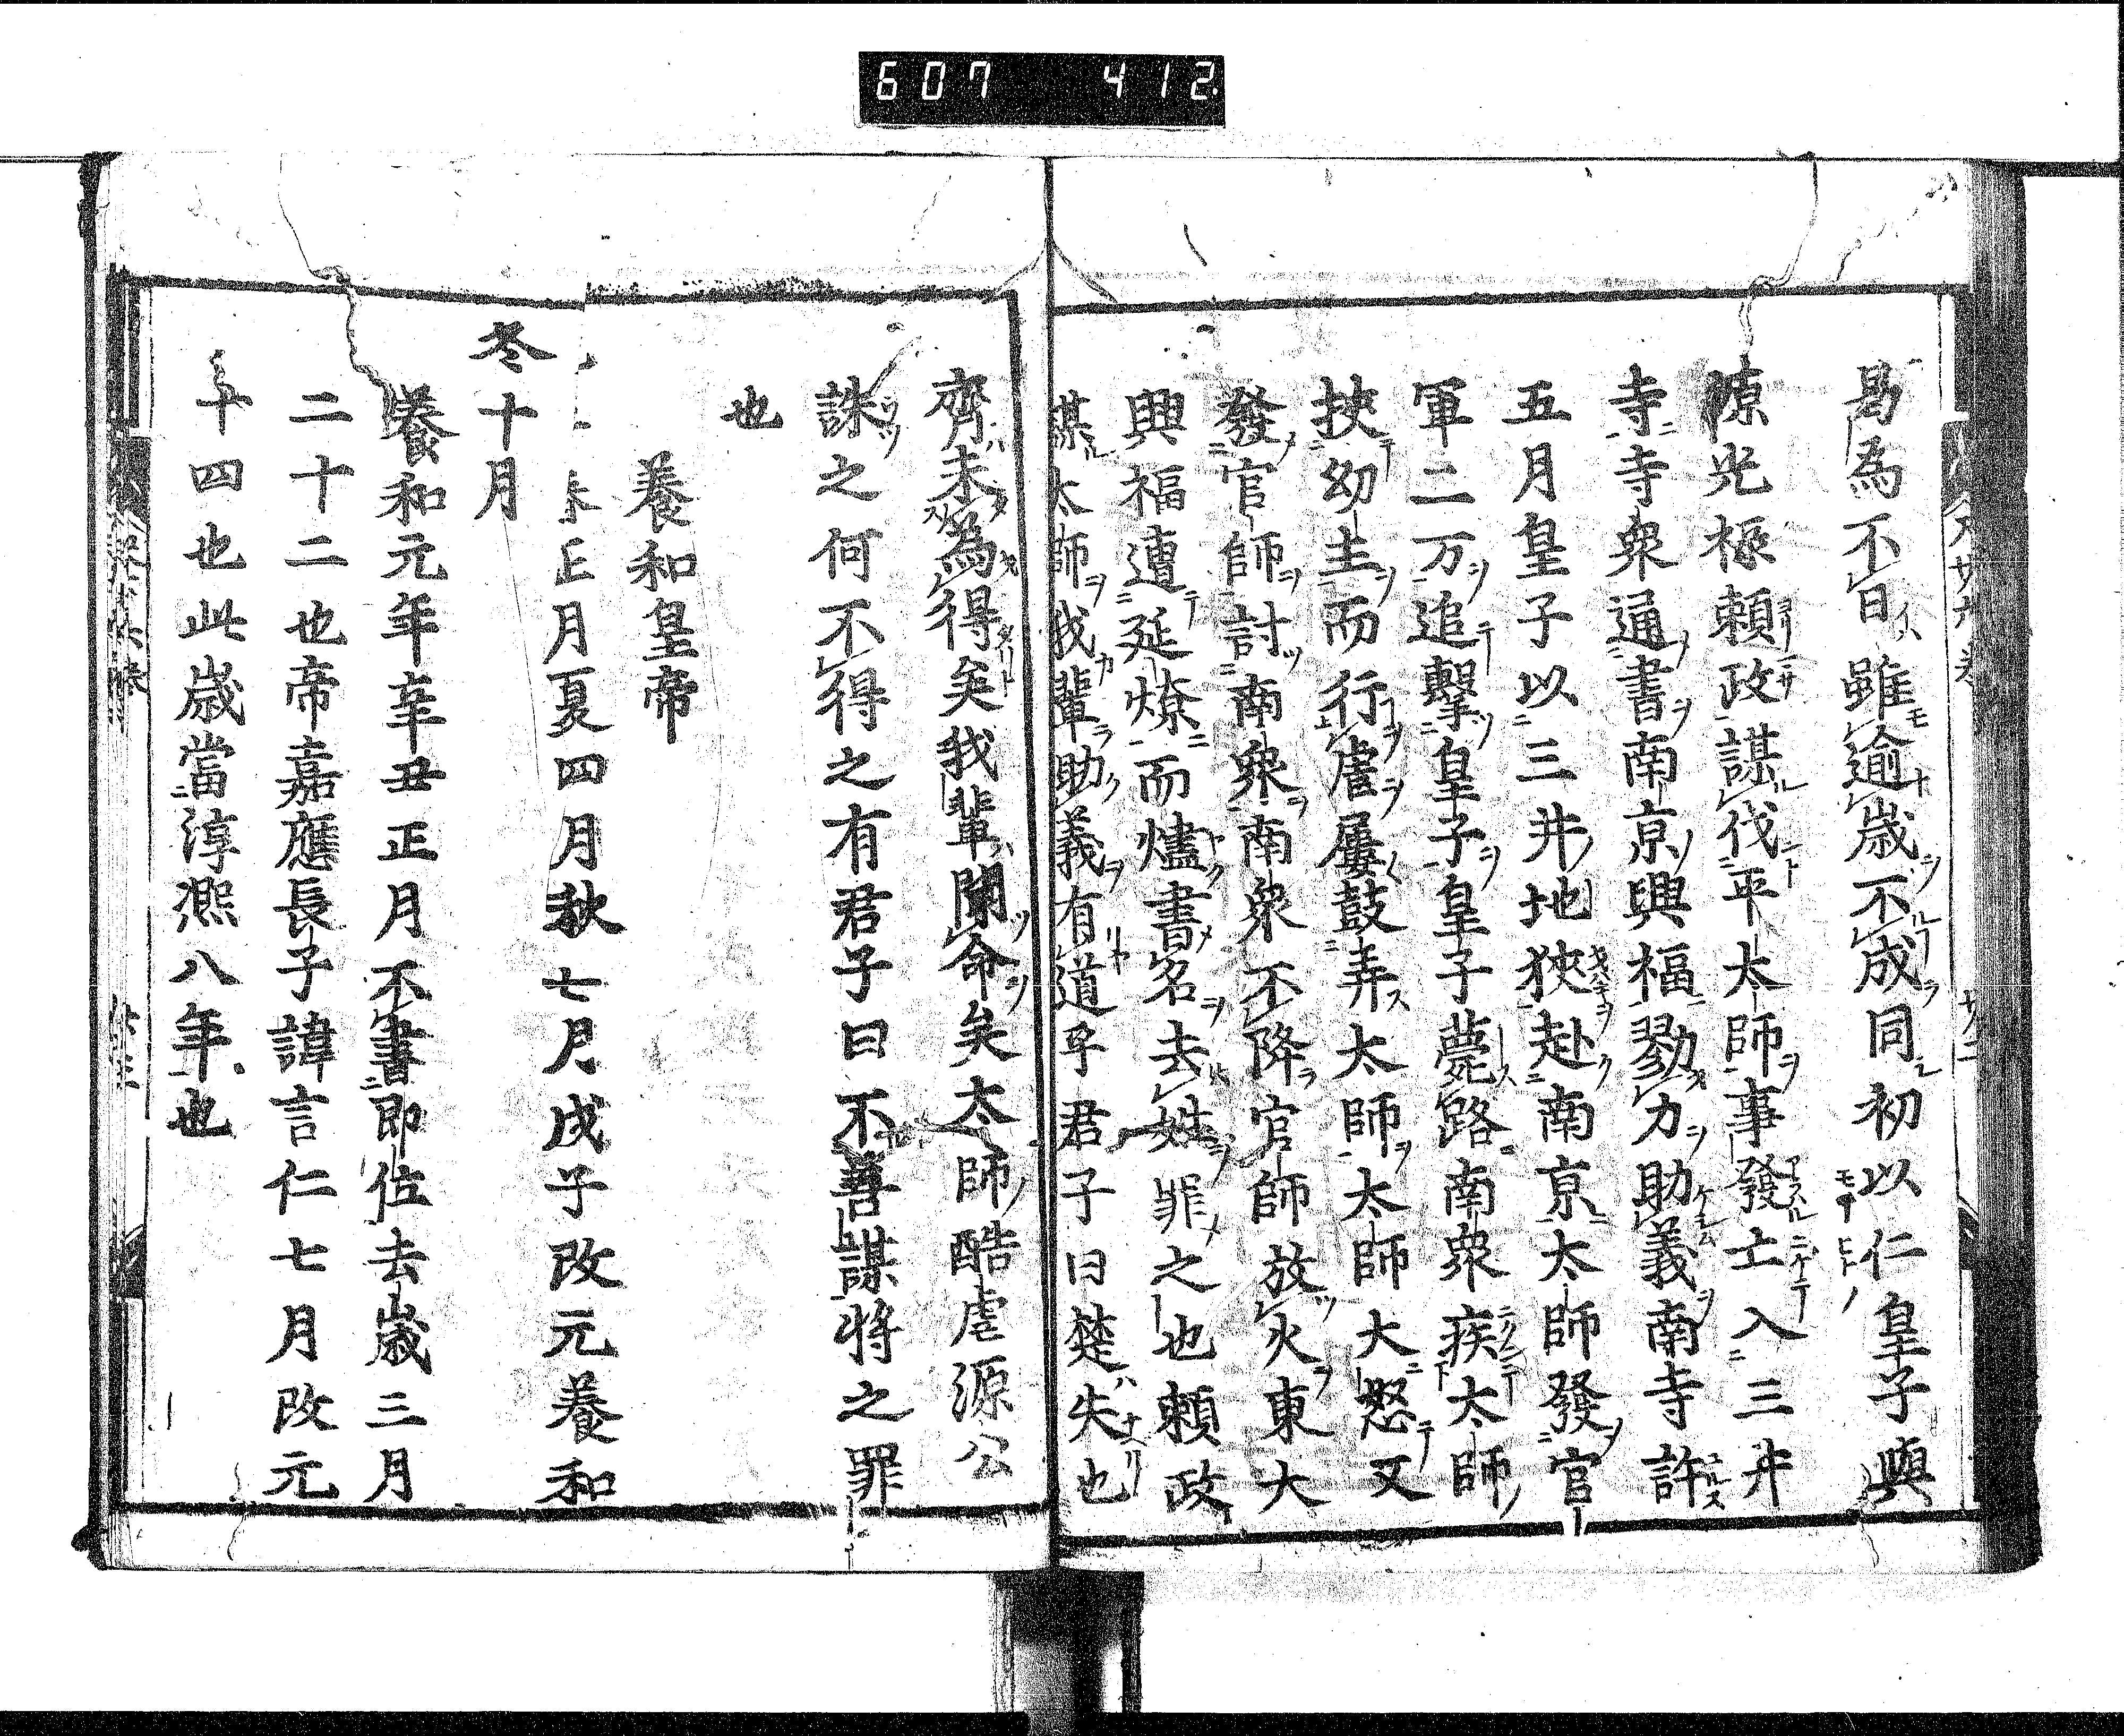 607 412
曷為不日雖逾歳不成同初以仁皇子與
源光極賴政謀伐平太師事發亡入三井
寺寺衆通書南京興福勠力助義南寺許
五月皇子以三井地狹赴南京太師發官
軍二万追擊皇子皇子薨路南衆疾太師
挾幼主而行虐屢鼓弄太師太師大怒又
發官師討南衆南衆不降官師放火東大
興福遭延燎而燼書名去姓罪之也賴政
謀太師我輩助義有道乎君子曰楚失也
齊未為得矣我輩聞命矣太師酷虐源公
誅之何不得之有君子曰不善謀將之罪
也
養和皇帝
正月夏四月秋七月戊子改元養和
冬十月
養和元年辛丑正月不書即位去歳三月
二十二也帝嘉應長子諱言仁七月改元
十四也此歳當淳熙八年也